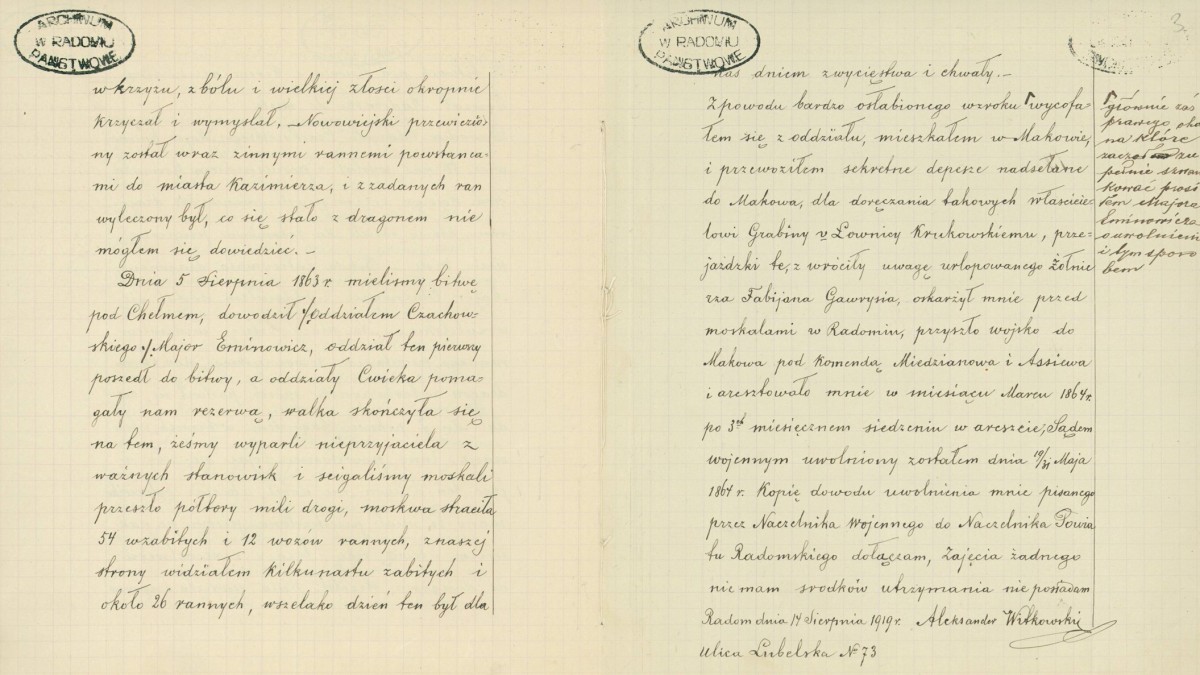 ARCHIWUM
W RADOMIU
PAŃSTWOWE
w krzyżu, z bólu i wielkiej złości okropnie
krzyczał i wymyślał. — Nowowiejski przewiezio-
ny został wraz zinnymi rannemi powstańca-
mi do miasta Kazimierza, i z zadanych ran
wyleczony był, co się stało z dragonem nie
mógłem się dowiedzieć. —
Dnia 5 Sierpnia 1863 r. mieliśmy bitwę
pod Chełmem, dowodził /oddziałem Czachow-
skiego/. Major Eminowicz, oddział ten pierwszy
poszedł do bitwy, a oddziały Cwieka poma-
gały nam rezerwą, walka skończyła się
na tem, żeśmy wyparli nieprzyjaciela z
ważnych stanowisk i scigaliśmy moskali
przeszło półtory mili drogi, moskwa straciła
54 wzabitych i 12 wozów rannych, znaszej
strony widziałem kilkunastu zabitych i
około 26 rannych, wszelako dzień ten był dla
ARCHIWUM
W RADOMIU
PAŃSTWOWE
3
nas dniem zwycięstwa i chwały. —
Zpowodu bardzo osłabionego wzroku Γwycofa-
łem się z oddziału, mieszkałem w Makowie,
i przewoziłem sekretne depesze nadsełane
do Makowa, dla doręczania takowych właścicie
lowi Grabiny v Łownicy Krukowskiemu, prze-
jażdzki te, zwróciły uwagę urlopowanego Żołnie
rza Fabijana Gawrysia, oskarżył mnie przed
moskalami w Radomiu, przyszło wojsko do
Makowa pod komendą Miedzianowa i Assiewa
i aresztowało mnie w miesiącu Marcu 1864 r.
po 3ch miesięcznem siedzeniu w areszcie, Sądem
wojennym uwolniony zostałem dnia 19/31 Maja
1864 r. Kopię dowodu uwolnienia mnie pisanego
przez Naczelnika Wojennego do Naczelnika Powia
tu Radomskiego dołączam, Zajęcia żadnego
nie mam srodków utrzymania nie posiadam
Radom dnia 14 Sierpnia 1919 r. Aleksander Witkowski
Ulica Lubelska № 73
Γgłównie zaś
prawego oka
na które
zacząłem zu
pełnie szwan
kować prosi
łem Majora
Eminowicza
o uwolnienie
i tym sposo
bem